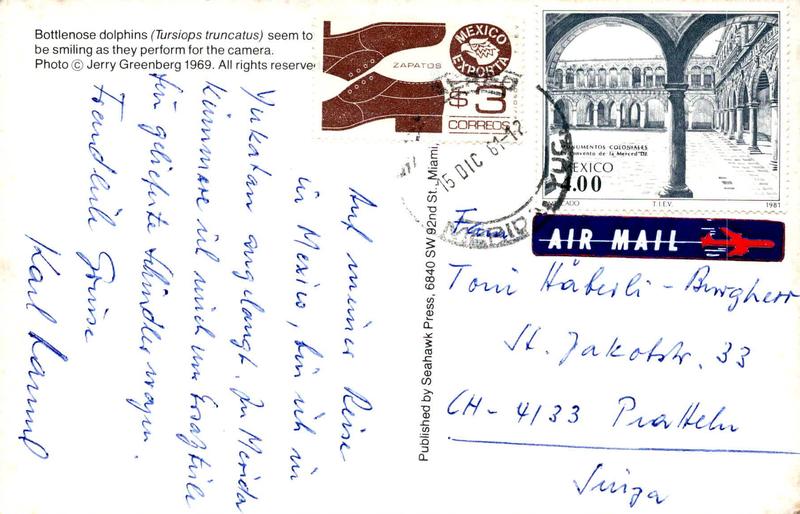 Bottlenose dolphins (Tursiops truncatus) seem to
be smiling as they perform for the camera.
Photo © Jerry Greenberg 1969. All rights reserve
Auf meiner Reise
in Mexico, bin ich in
Yukatan angelangt. In Merida
kümmere ich mich um Ersatzteile
für gelieferte Schindler wagen.
Freundliche Grüsse
Karl
Published by Seahawk Press, 6840 SW 92nd St., Miami,
ZAPATOS
MEXICO
EXPORTA
$3
CORREOS
15 DIC
MERIDA YUC
MONUMENTOS COLONIALES
Convento de la Merced DF
MEXICO
4.00
T.I.E.V.
1981
AIR MAIL
Fam
Toni Häberli-Burgherr
St. Jakobstr. 33
CH-4133 Pratteln
Suiza